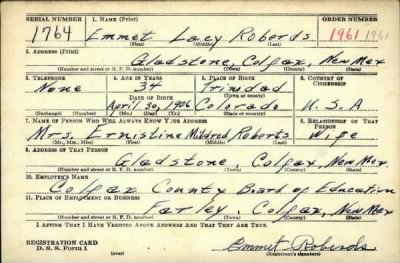 SERIAL NUMBER 1. NAME (Print) ORDER NUMBER
1764 Emmet Lacy Roberds 1961 1961
(First) (Middle) (Last)
2. ADDRESS (Print)
Gladstone, Colfax, New Mex
(Number and street or R. F. D. number) (Town) (County) (State)
3. TELEPHONE 4. AGE IN YEARS 5. PLACE OF BIRTH 6. COUNTRY OF CITIZENSHIP
None 34 Trinidad
DATE OF BIRTH (Town or county)
April 30, 1906 Colorado U.S.A
(Exchange) (Number) (Mo.) (Day) (Yr.) (State or country)
7. NAME OF PERSON WHO WILL ALWAYS KNOW YOUR ADDRESS 8. RELATIONSHIP OF THAT PERSON
Mrs. Ernistine Mildred Roberts Wife
(Mr., Mrs., Miss) (First) (Middle) (Last)
9. ADDRESS OF THAT PERSON
Gladstone, Colfax, New Mex
(Number and street or R. F. D. number) (Town) (County) (State)
10. EMPLOYER'S NAME
Colfax County Board of Education
11. PLACE OF EMPLOYMENT OR BUSINESS
Farley Colfax, New Mex
(Number and street or R. F. D. number) (Town) (County) (State)
I AFFIRM THAT I HAVE VERIFIED ABOVE ANSWERS AND THAT THEY ARE TRUE.
REGISTRATION CARD
D. S. S. Form 1
Emmet Roberds
(Registrant's signature)